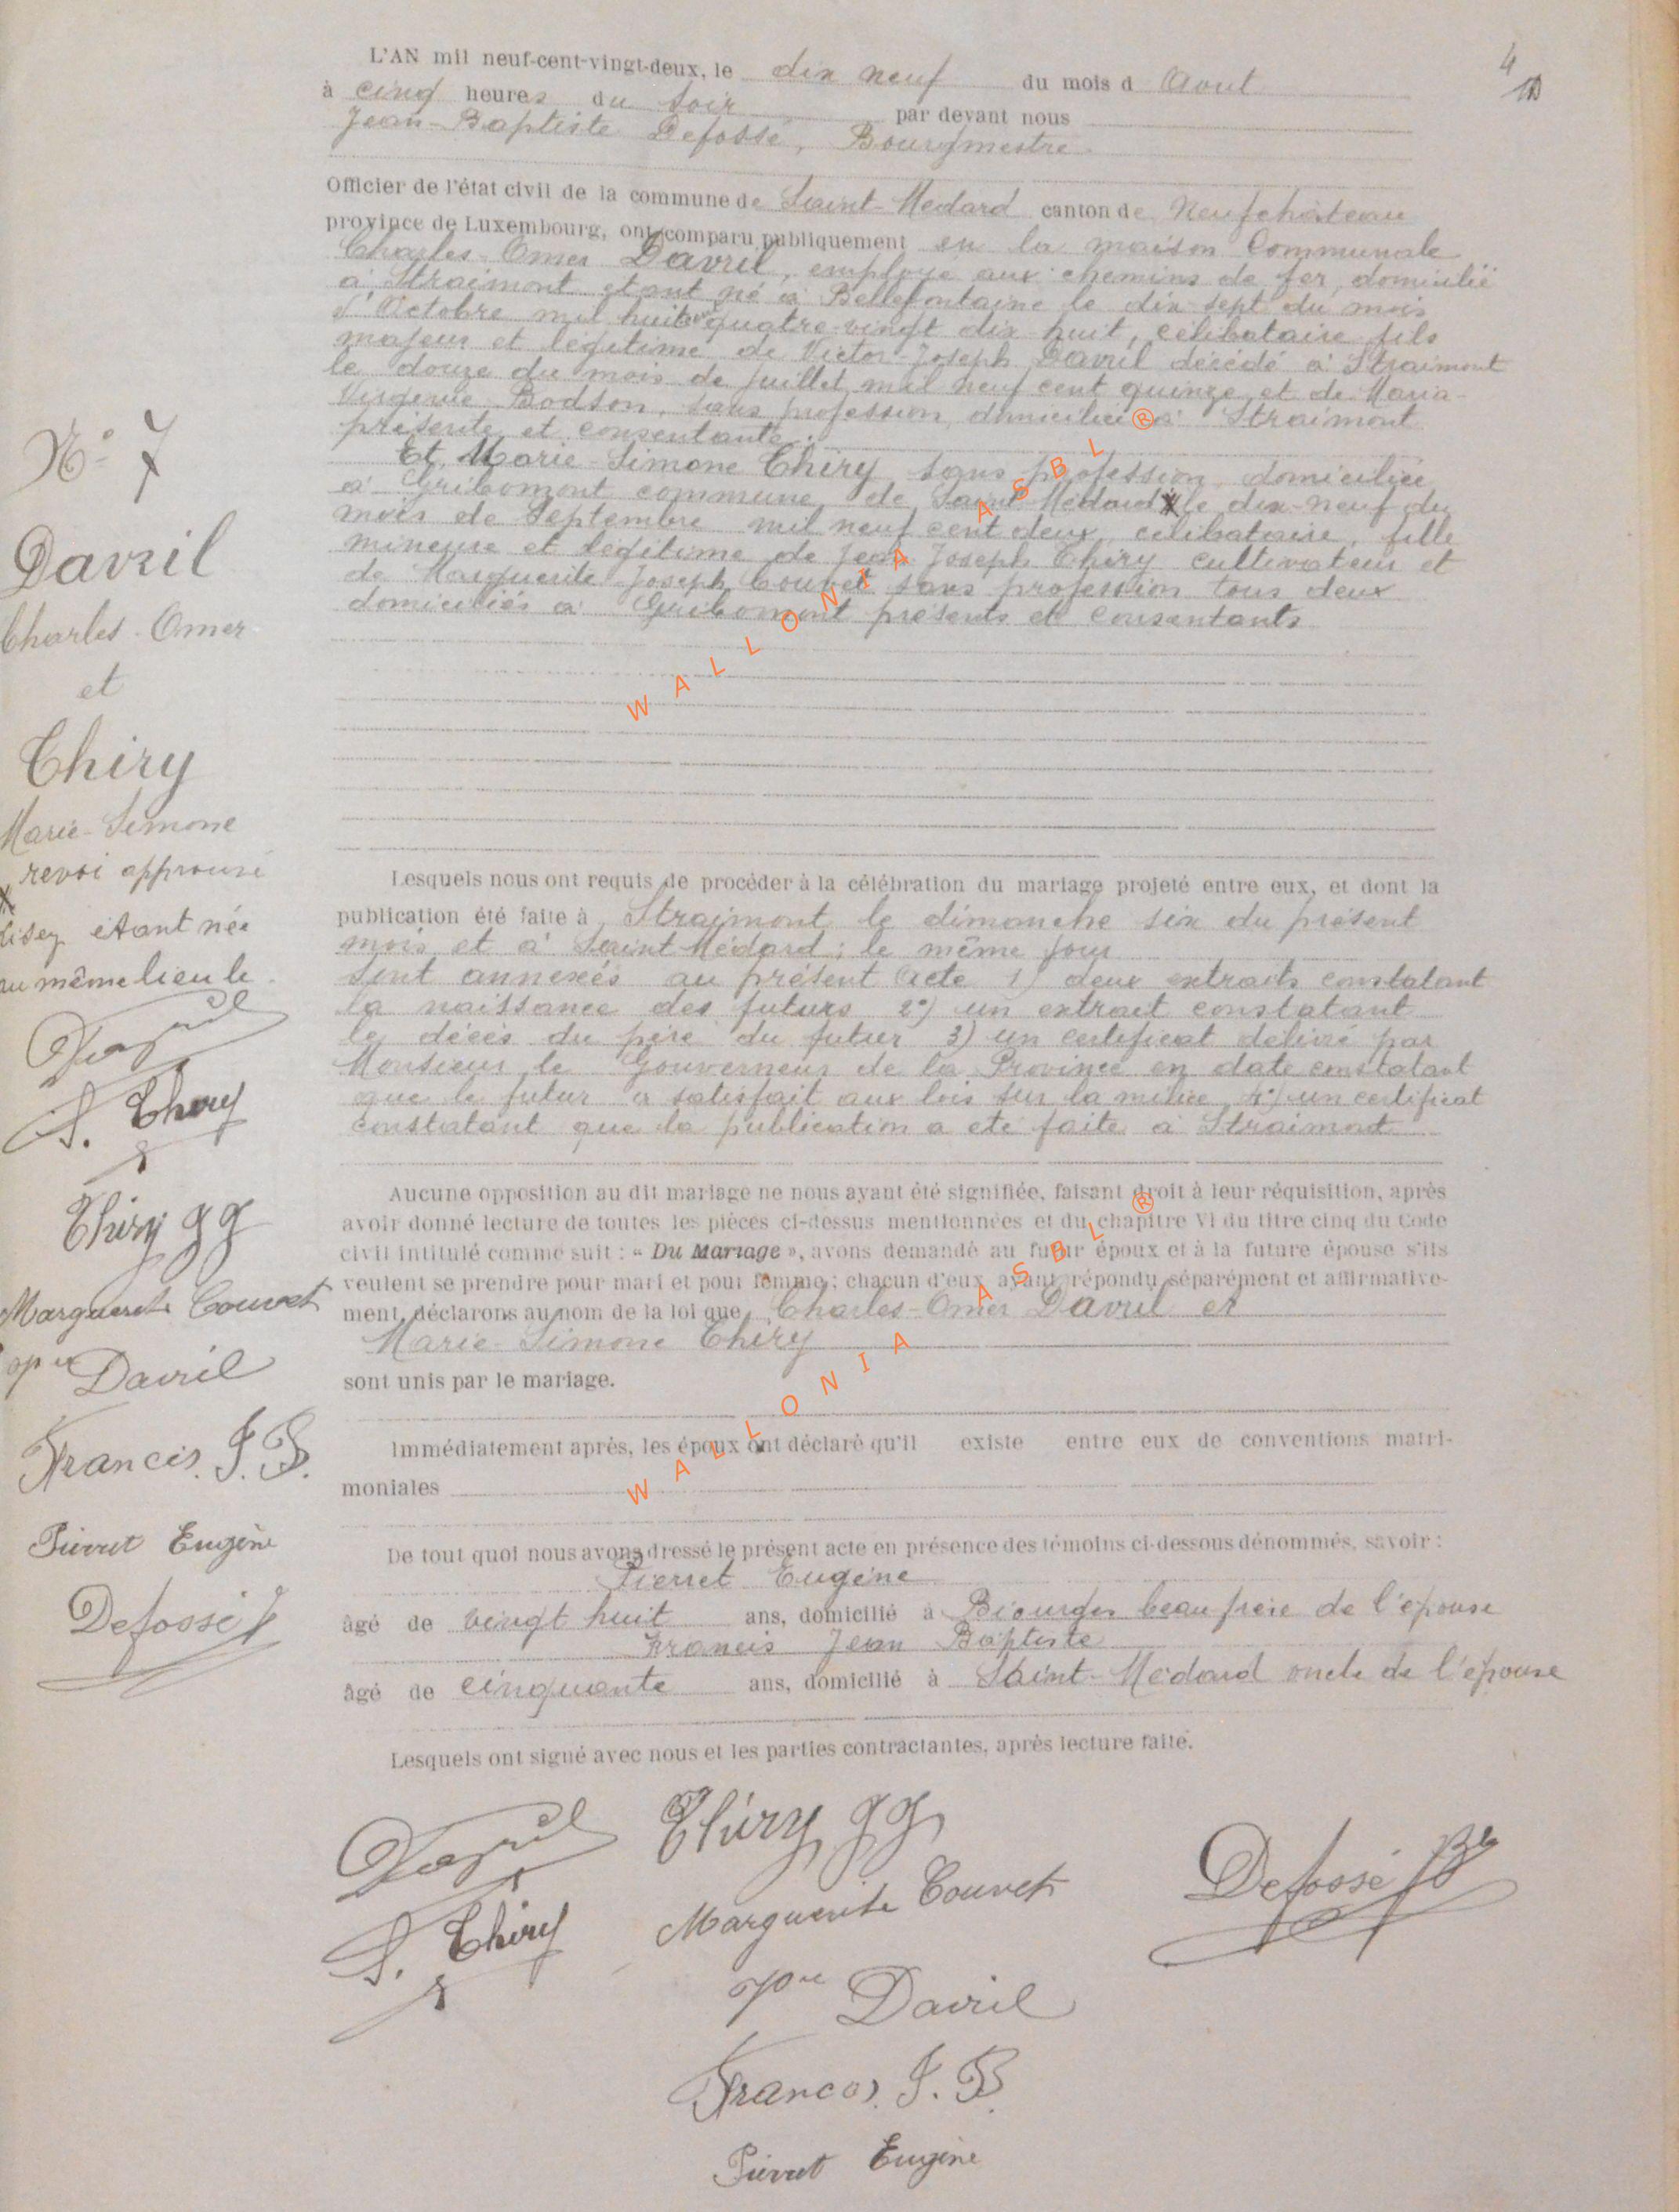 4
L'AN mil neuf-cent-vingt-deux, le dix neuf du mois d Aout
à cinq heures du soir par devant nous
Jean-Baptiste Defossé, Bourgmestre
Officier de l'état civil de la commune de Saint-Médard canton de Neufchâteau
province de Luxembourg, ont comparu publiquement en la maison Communale
Charles-Omer Davril, employé aux chemins de fer, domicilié
à Straimont etant né à Bellefontaine le dix sept du mois
d'Octobre mil huit cent quatre-vingt dix huit, célibataire fils
majeur et légitime de Victor-Joseph Davril décédé à Straimont
le douze du mois de Juillet mil neuf cent quinze et de Maria-
Virginie Bodson, sans profession, domiciliée à Straimont
présente et consentante.
Et Marie-Simone Thiry sans profession domiciliée
à Gribomont commune de Saint-Médard X le dix-neuf du
mois de Septembre mil neuf cent deux, célibataire, fille
mineure et légitime de Jean Joseph Thiry cultivateur et
de Marguerite-Joseph Couvet sans profession tous deux
domiciliés à Gribomont présents et consentants
N° 7
Davril
Charles-Omer
et
Thiry
Marie-Simone
renvoi approuvé
X
lisez étant née
au même lieu le
Davril
S. Thiry
Thiry JJ
Marguerite Couvet
Davril
Francis J. B.
Pierret Eugène
Defossé
Lesquels nous ont requis de procéder à la célébration du mariage projeté entre eux, et dont la
publication été faite à Straimont le dimanche six du présent
mois et à Saint-Médard; le même jour
Sont annexés au présent acte 1) deux extraits constatant
la naissance des futurs 2°) un extrait constatant
le décès du père du futur 3) un certificat délivré par
Monsieur le Gouverneur de la Province en date constatant
que le futur a satisfait aux lois sur la milice 4°) un certificat
constatant que la publication a été faite à Straimont
Aucune opposition au dit mariage ne nous ayant été signifiée, faisant droit à leur réquisition, après
avoir donné lecture de toutes les pièces ci-dessus mentionnées et du chapitre VI du titre cinq du Code
civil intitulé comme suit : « Du Mariage », avons demandé au futur époux et à la future épouse s'ils
veulent se prendre pour mari et pour femme; chacun d'eux ayant répondu séparément et affirmative-
ment, déclarons au nom de la loi que Charles-Omer Davril et
Marie-Simone Thiry
sont unis par le mariage.
Immédiatement après, les époux ont déclaré qu'il existe entre eux de conventions matri-
moniales
De tout quoi nous avons dressé le présent acte en présence des témoins ci-dessous dénommés, savoir :
Pierret Eugène
âgé de vingt huit ans, domicilié à Biourge beau frère de l'épouse
Francis Jean Baptiste
âgé de cinquante ans, domicilié à Saint-Médard oncle de l'épouse
Lesquels ont signé avec nous et les parties contractantes, après lecture faite.
Davril
Thiry JJ
S. Thiry
Marguerite Couvet
Defossé JB
Davril
Francis J. B
Pierret Eugène
WALLONIA ASBL ®
WALLONIA ASBL ®